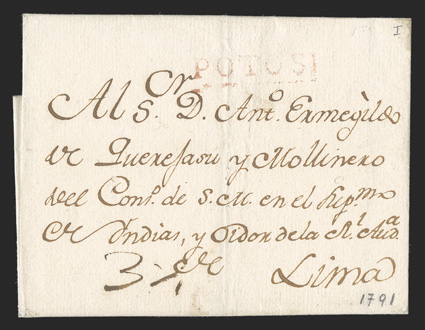 I
POTOSI
Al Sr. D. Anto. Ermegildo
de Querejasu y Mollinero
del Conso. de S. M. en el Supmo
de Yndias, y Oidor de la Rl. Auda.
Lima
1791